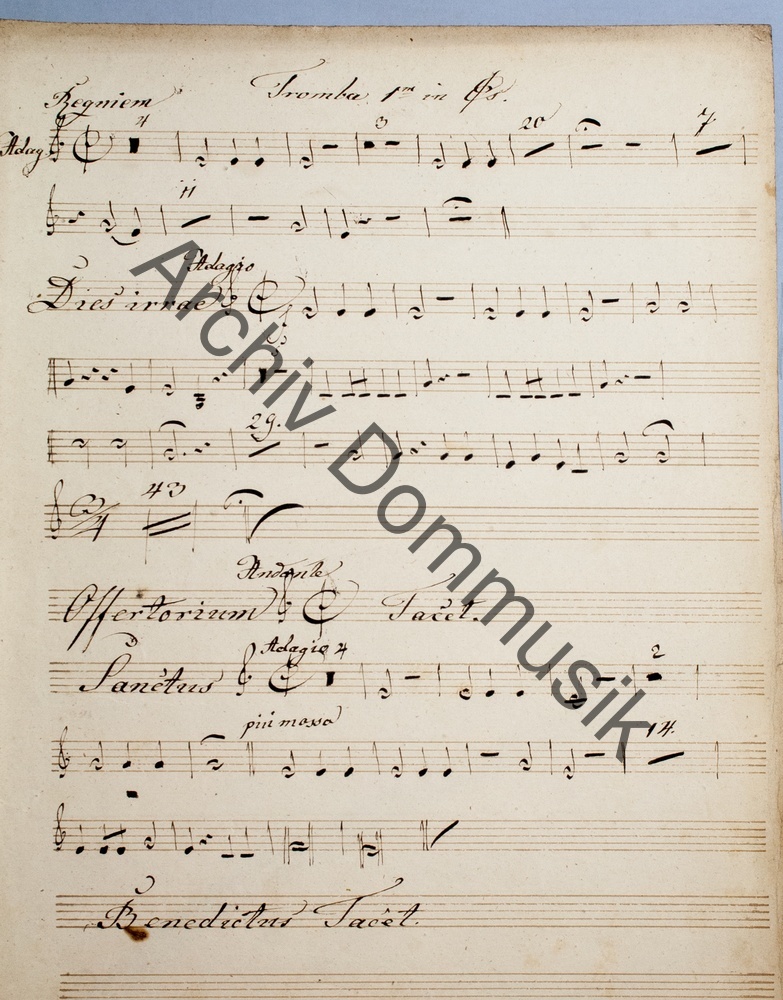 Requiem Tromba 1m in
Adag.
4 3 20 7
11
Adagio
Dies irrae
29.
3/4 43
Andante
Offertorium Tacet.
Adagio 4 2
Sanctus
più mosso 14.
Benedictus Tacet.
Archiv Dommusik